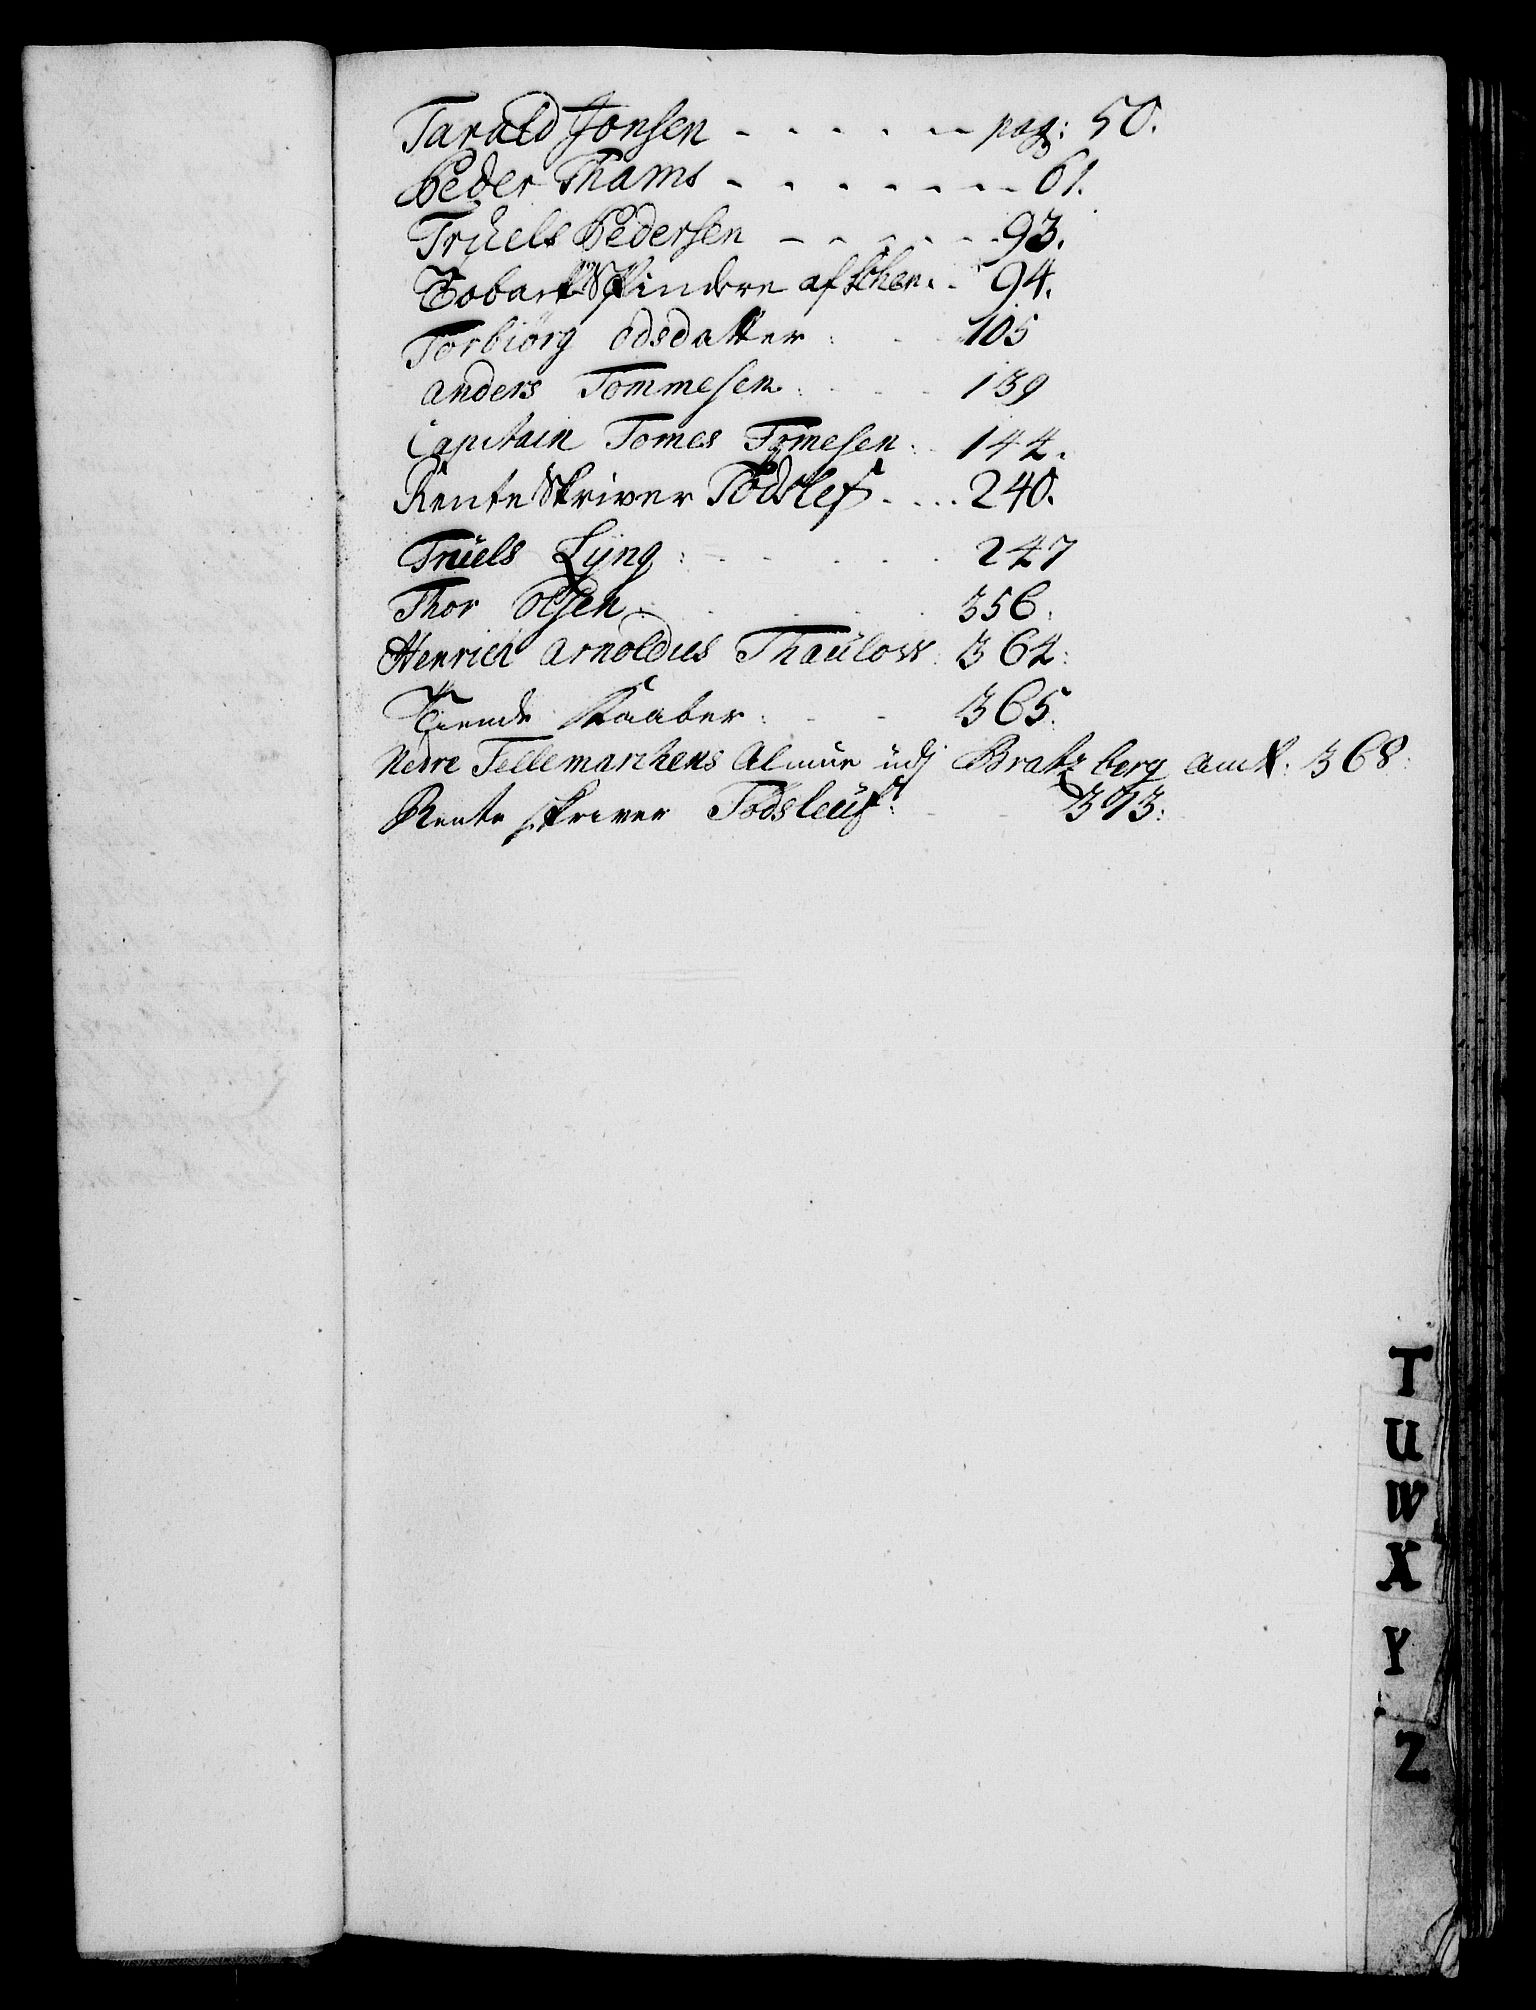 Tarald Jonsen - - - - - - pag: 50.
Peder Thams - - - - - - - 61.
Truels Pedersen - - - - - - 93.
Tobacks Spindere af Khen. - 94.
Torbiörg Odsdatter : - - 105
Anders Tommesen : - - - 139
Capitain Tomes Tomesen : - 144.
Rente Skriver Todslef . . . . 240.
Trüels Lÿng : - - - - - 247
Thor Olsen . . . . . 356.
Henrich Arnoldus Thaülow : 364:
Tiende Kaaber : - - 365:
Nedre Tellemarchens Almue udj Bratzberg Amt : 368:
Rente skriver Todsleüf : - - 373:
T
U
W
X
Y
Z